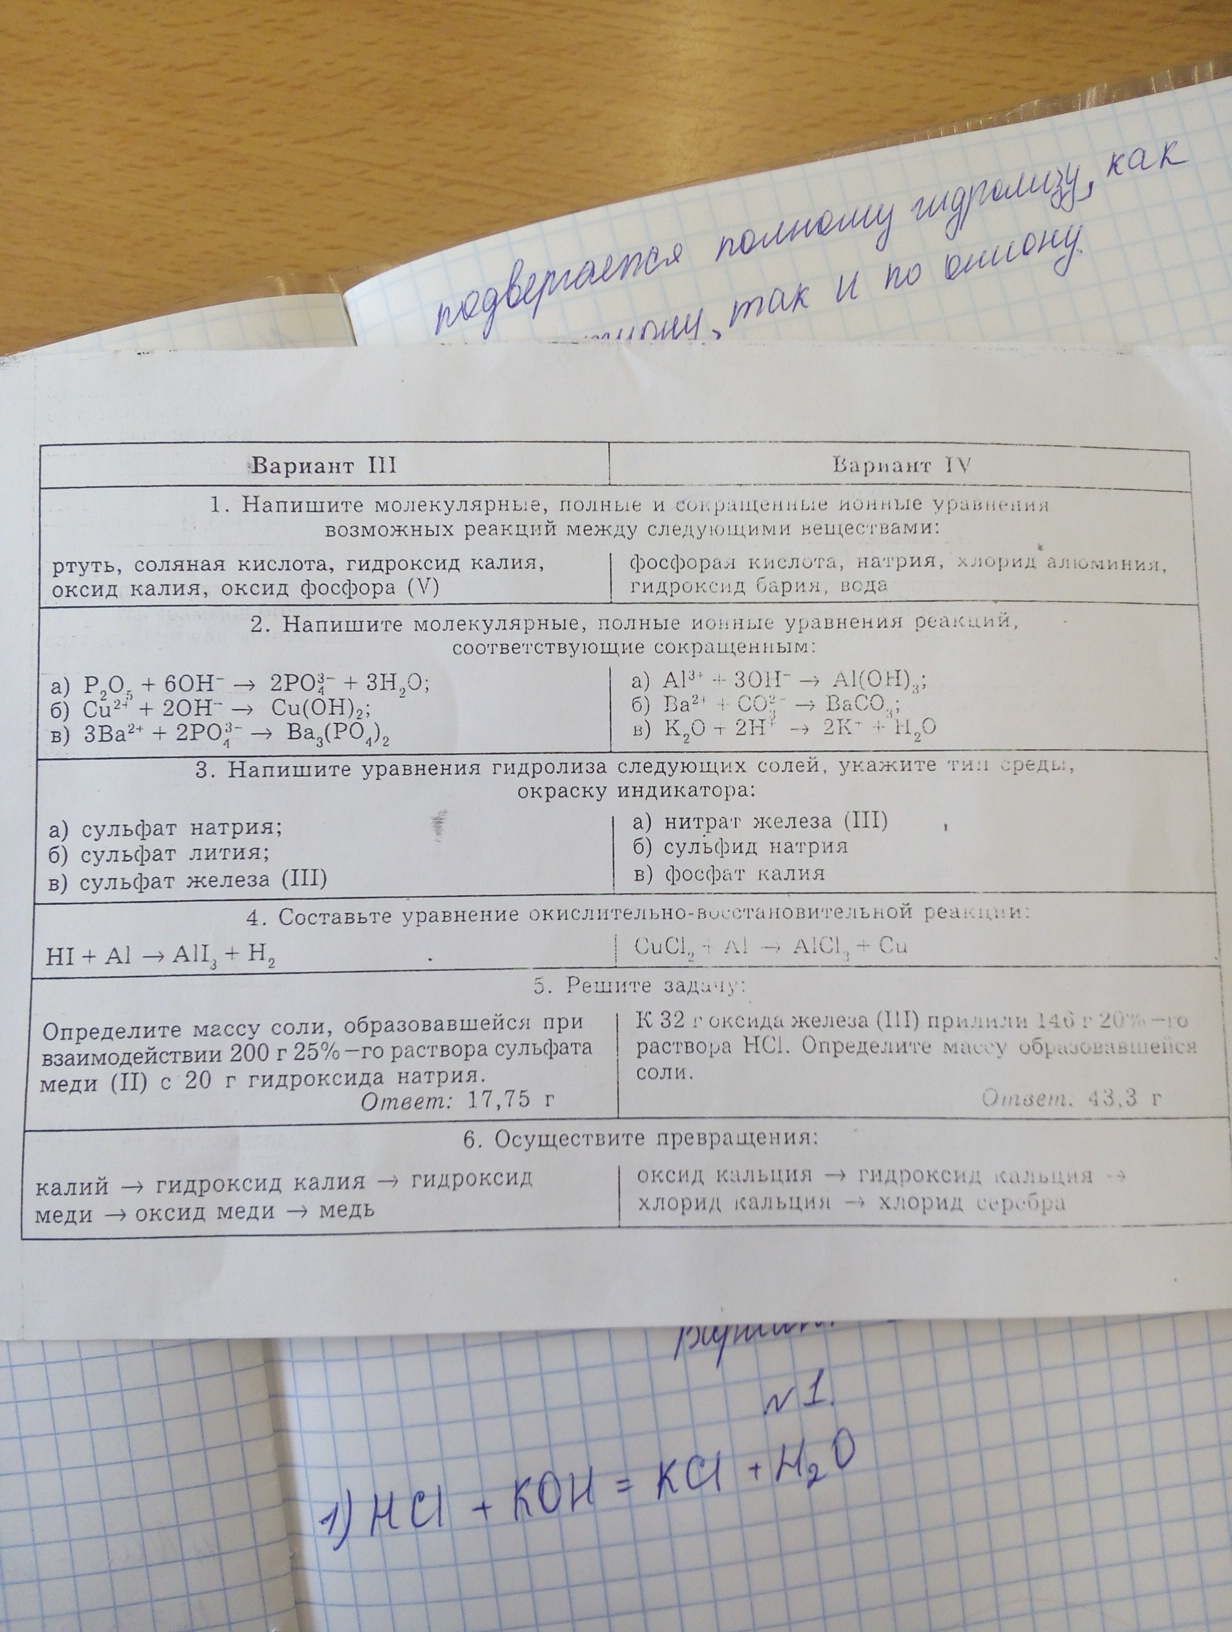 подвергается полному гидролизу, как
так и по аниону.
Вариант III
Вариант IV
1. Напишите молекулярные, полные и сокращенные ионные уравнения
возможных реакций между следующими веществами:
ртуть, соляная кислота, гидроксид калия,
оксид калия, оксид фосфора (V)
фосфорая кислота, натрия, хлорид алюминия,
гидроксид бария, вода
2. Напишите молекулярные, полные ионные уравнения реакций,
соответствующие сокращенным:
а) P₂O₅ + 6OH⁻ → 2PO₄³⁻ + 3H₂O;
б) Cu²⁺ + 2OH⁻ → Cu(OH)₂;
в) 3Ba²⁺ + 2PO₄³⁻ → Ba₃(PO₄)₂
а) Al³⁺ + 3OH⁻ → Al(OH)₃;
б) Ba²⁺ + CO₃²⁻ → BaCO₃;
в) K₂O + 2H⁺ → 2K⁺ + H₂O
3. Напишите уравнения гидролиза следующих солей, укажите тип среды,
окраску индикатора:
а) сульфат натрия;
б) сульфат лития;
в) сульфат железа (III)
а) нитрат железа (III)
б) сульфид натрия
в) фосфат калия
4. Составьте уравнение окислительно-восстановительной реакции:
HI + Al → AlI₃ + H₂
CuCl₂ + Al → AlCl₃ + Cu
5. Решите задачу:
Определите массу соли, образовавшейся при
взаимодействии 200 г 25%−го раствора сульфата
меди (II) с 20 г гидроксида натрия.
Ответ: 17,75 г
К 32 г оксида железа (III) прилили 146 г 20%−го
раствора HCl. Определите массу образовавшейся
соли.
Ответ. 43,3 г
6. Осуществите превращения:
калий → гидроксид калия → гидроксид
меди → оксид меди → медь
оксид кальция → гидроксид кальция →
хлорид кальция → хлорид серебра
№1.
1) HCl + KOH = KCl + H₂O